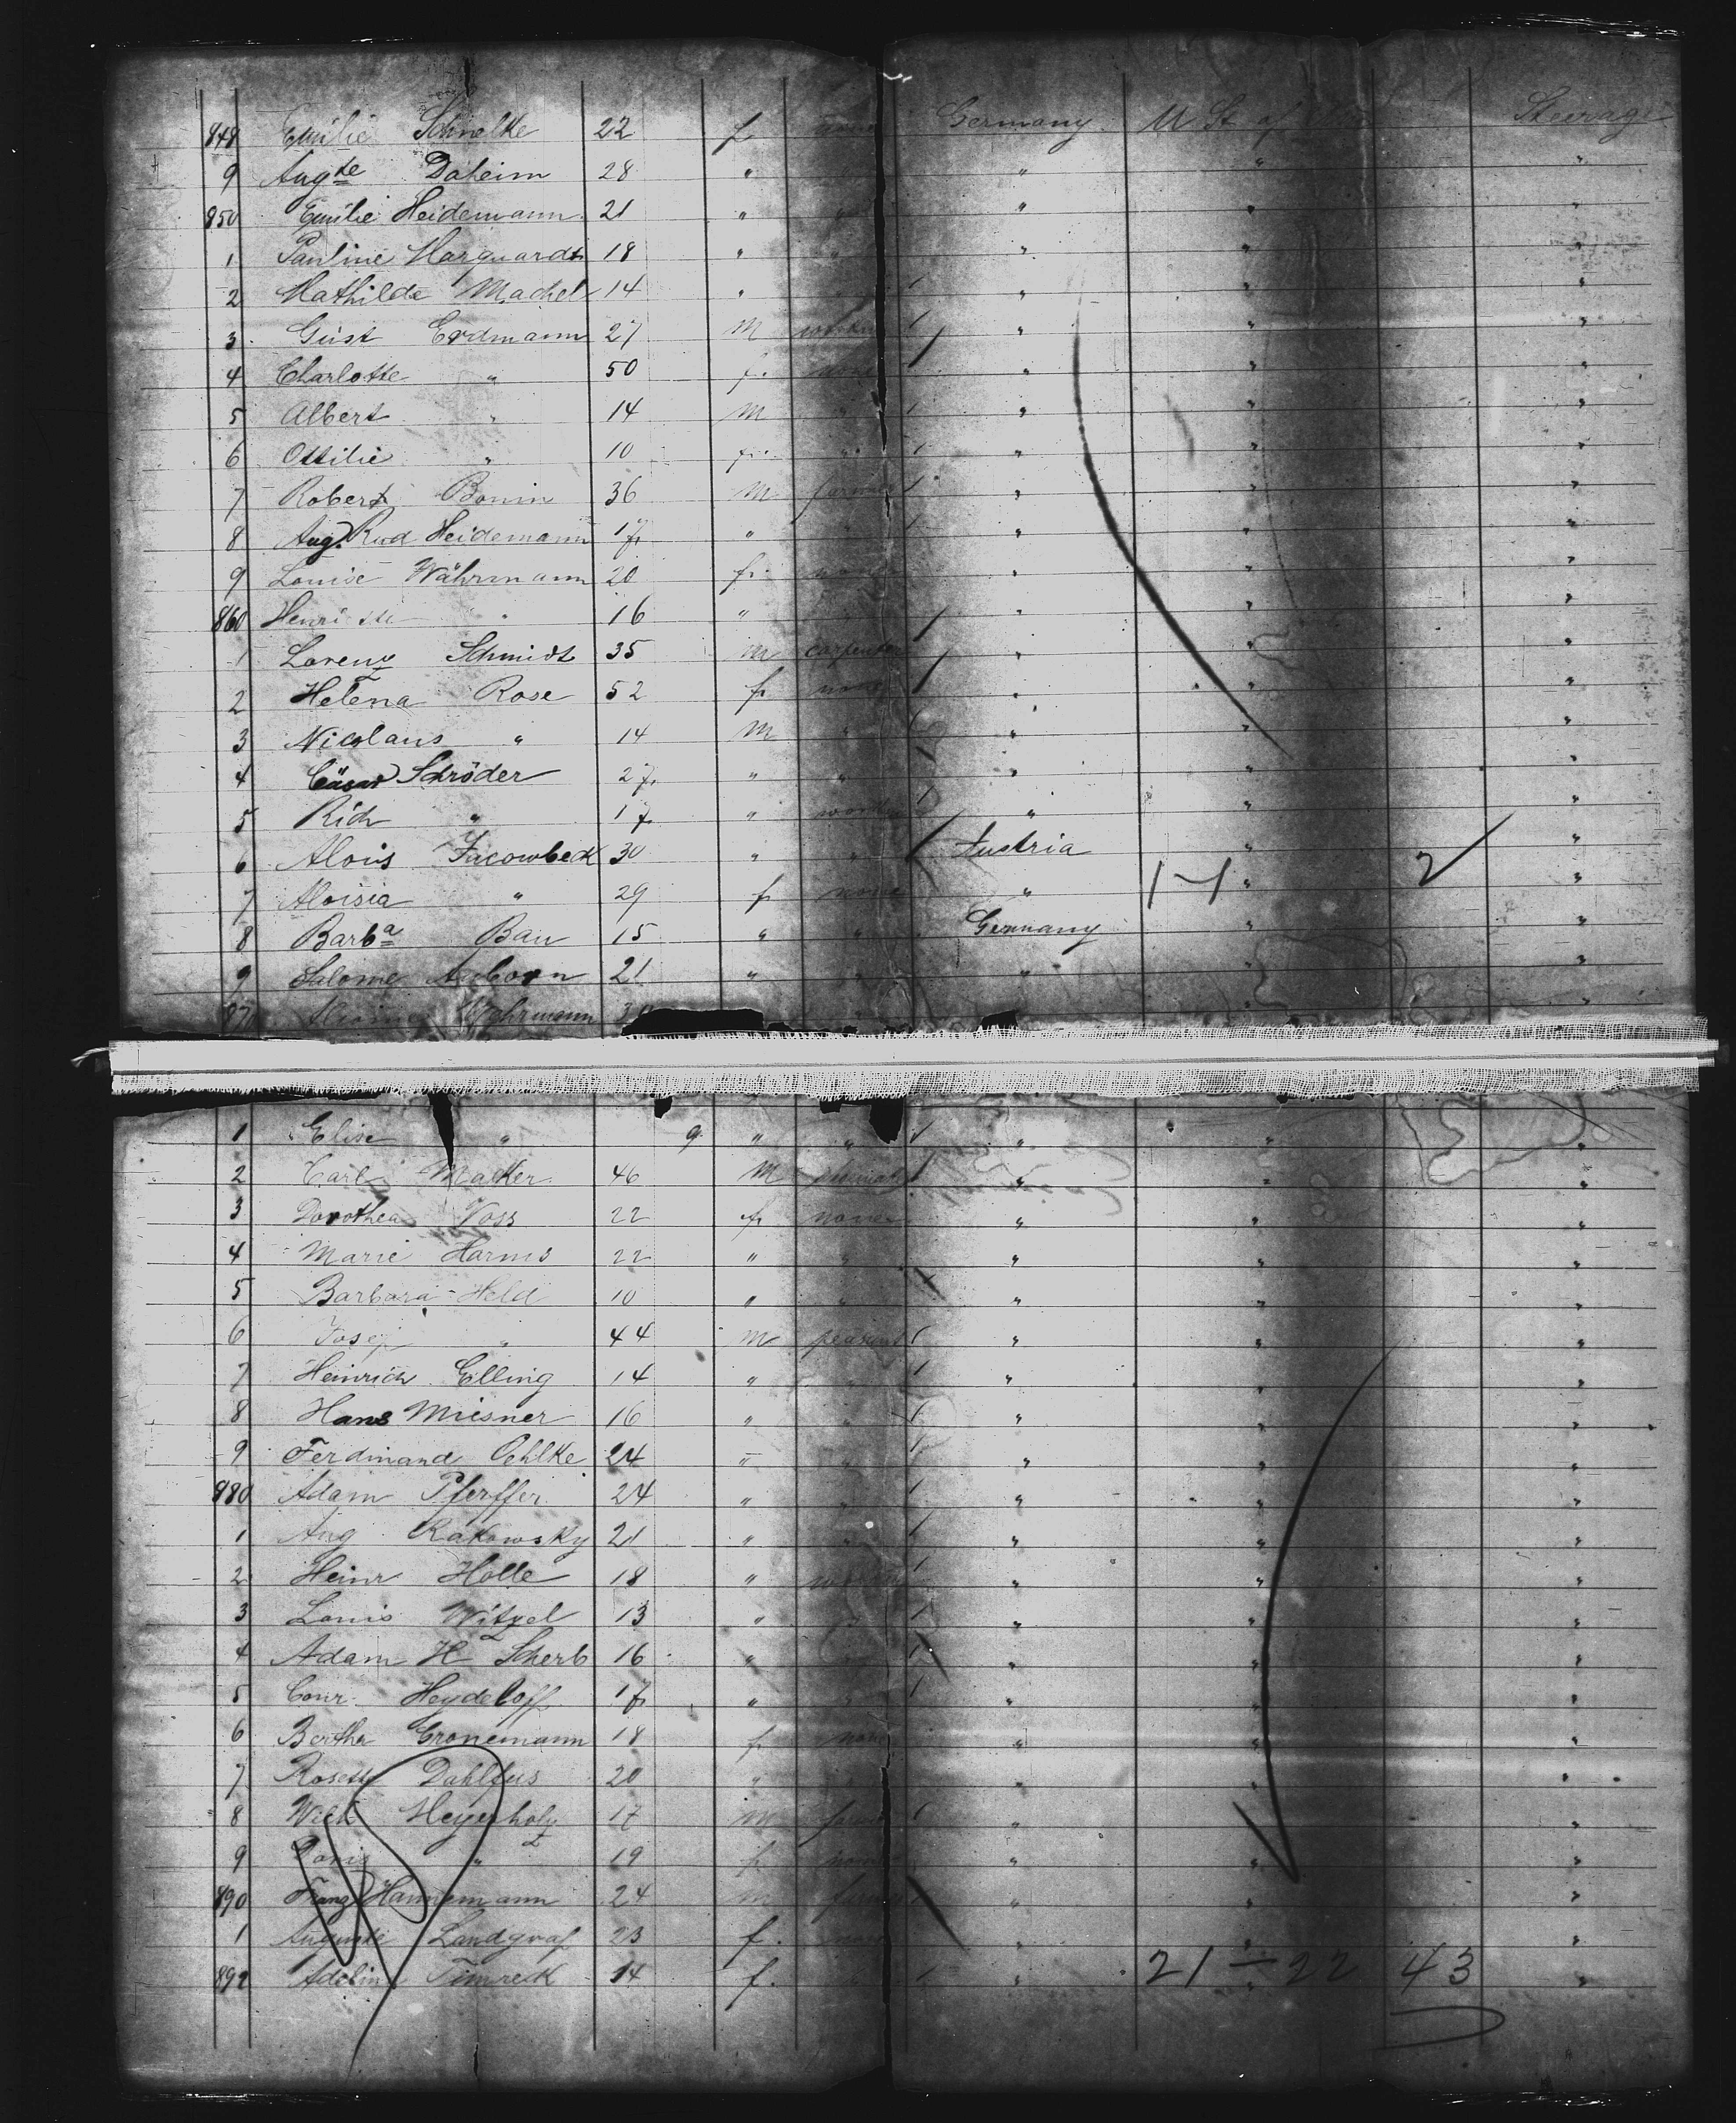 848 Emilie Schnelke 22 f none Germany U St of Steerage
9 Aug<u>te</u> Daheim 28 " " " "
850 Emilie Heidemann 21 " " " " "
1 Pauline Marquardt 18 " " " " "
2 Mathilde Machel 14 " " " "
3 Gust Erdmann 27 m " " "
4 Charlotte " 50 f. none " " "
5 Albert " 14 m " " " "
6 Ottilie " 10 f. " " " "
7 Robert Bonin 36 m farmer " " "
8 Aug. Rud Heidemann 17 " " " " "
9 Louise Währmann 20 f. " " "
860 " 16 " " " " "
1 Lorenz Schmidt 35 m carpenter " " "
2 Helena Rose 52 f none " " "
3 Nicolaus " 14 m " " " "
4 Cäsar Schröder 27 " " " " "
5 Rich " 17 " " " "
6 Alois Jacowbeck 30 " " Austria " "
7 Aloisia " 29 f none " 1-1 " 2 "
8 Barb<u>a</u> Bau 15 " " Germany " "
9 Salome 21 " " " " "
870 Wehrmann " " "
1 Elise " 9 " " " " "
2 Carl Macker 46 m " " "
3 Dorothea Voss 22 f none " " "
4 Marie Harms 22 " " " " "
5 Barbara Held 10 " " " " "
6 " 44 m peasant " " "
7 Heinrich Elling 14 " " " " "
8 Hans Miesner 16 " " " " "
9 Ferdinand Oehlke 24 " " " " "
880 Adam Pfeiffer 24 " " " " "
1 Aug Rakowsky 21 " " " " "
2 Heinr Holle 18 " " " "
3 Louis Witzel 13 " " " " "
4 Adam H Scherb 16 " " " " "
5 Conr. Heydeloff 17 " " " " "
6 Bertha Cronemann 18 f none " " "
7 Dahlfus 20 " " " " "
8 Heyerholz 17 m " " "
9 " 19 f none " " "
890 Franz Hannemann 24 m " " "
1 Auguste Landgraf 23 f. none " " "
892 Timreck 14 f. " " 21 - 22 43 "